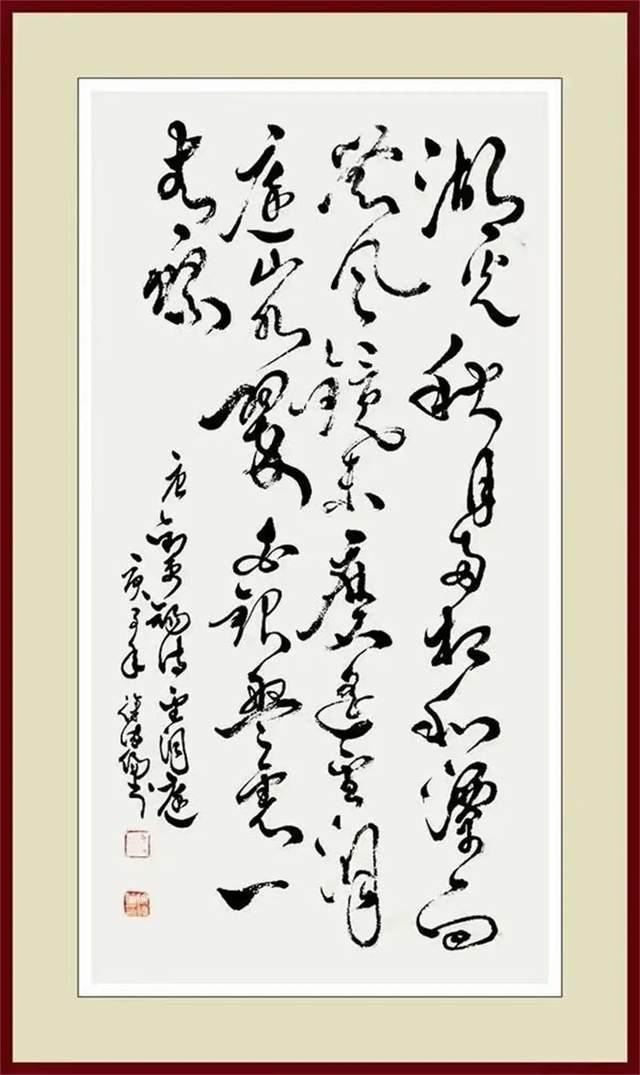 湖光秋月两相和潭面
无风镜未磨遥望洞
庭山水翠白银盘里一
青螺
唐刘禹锡诗望洞庭
庚子年徐书